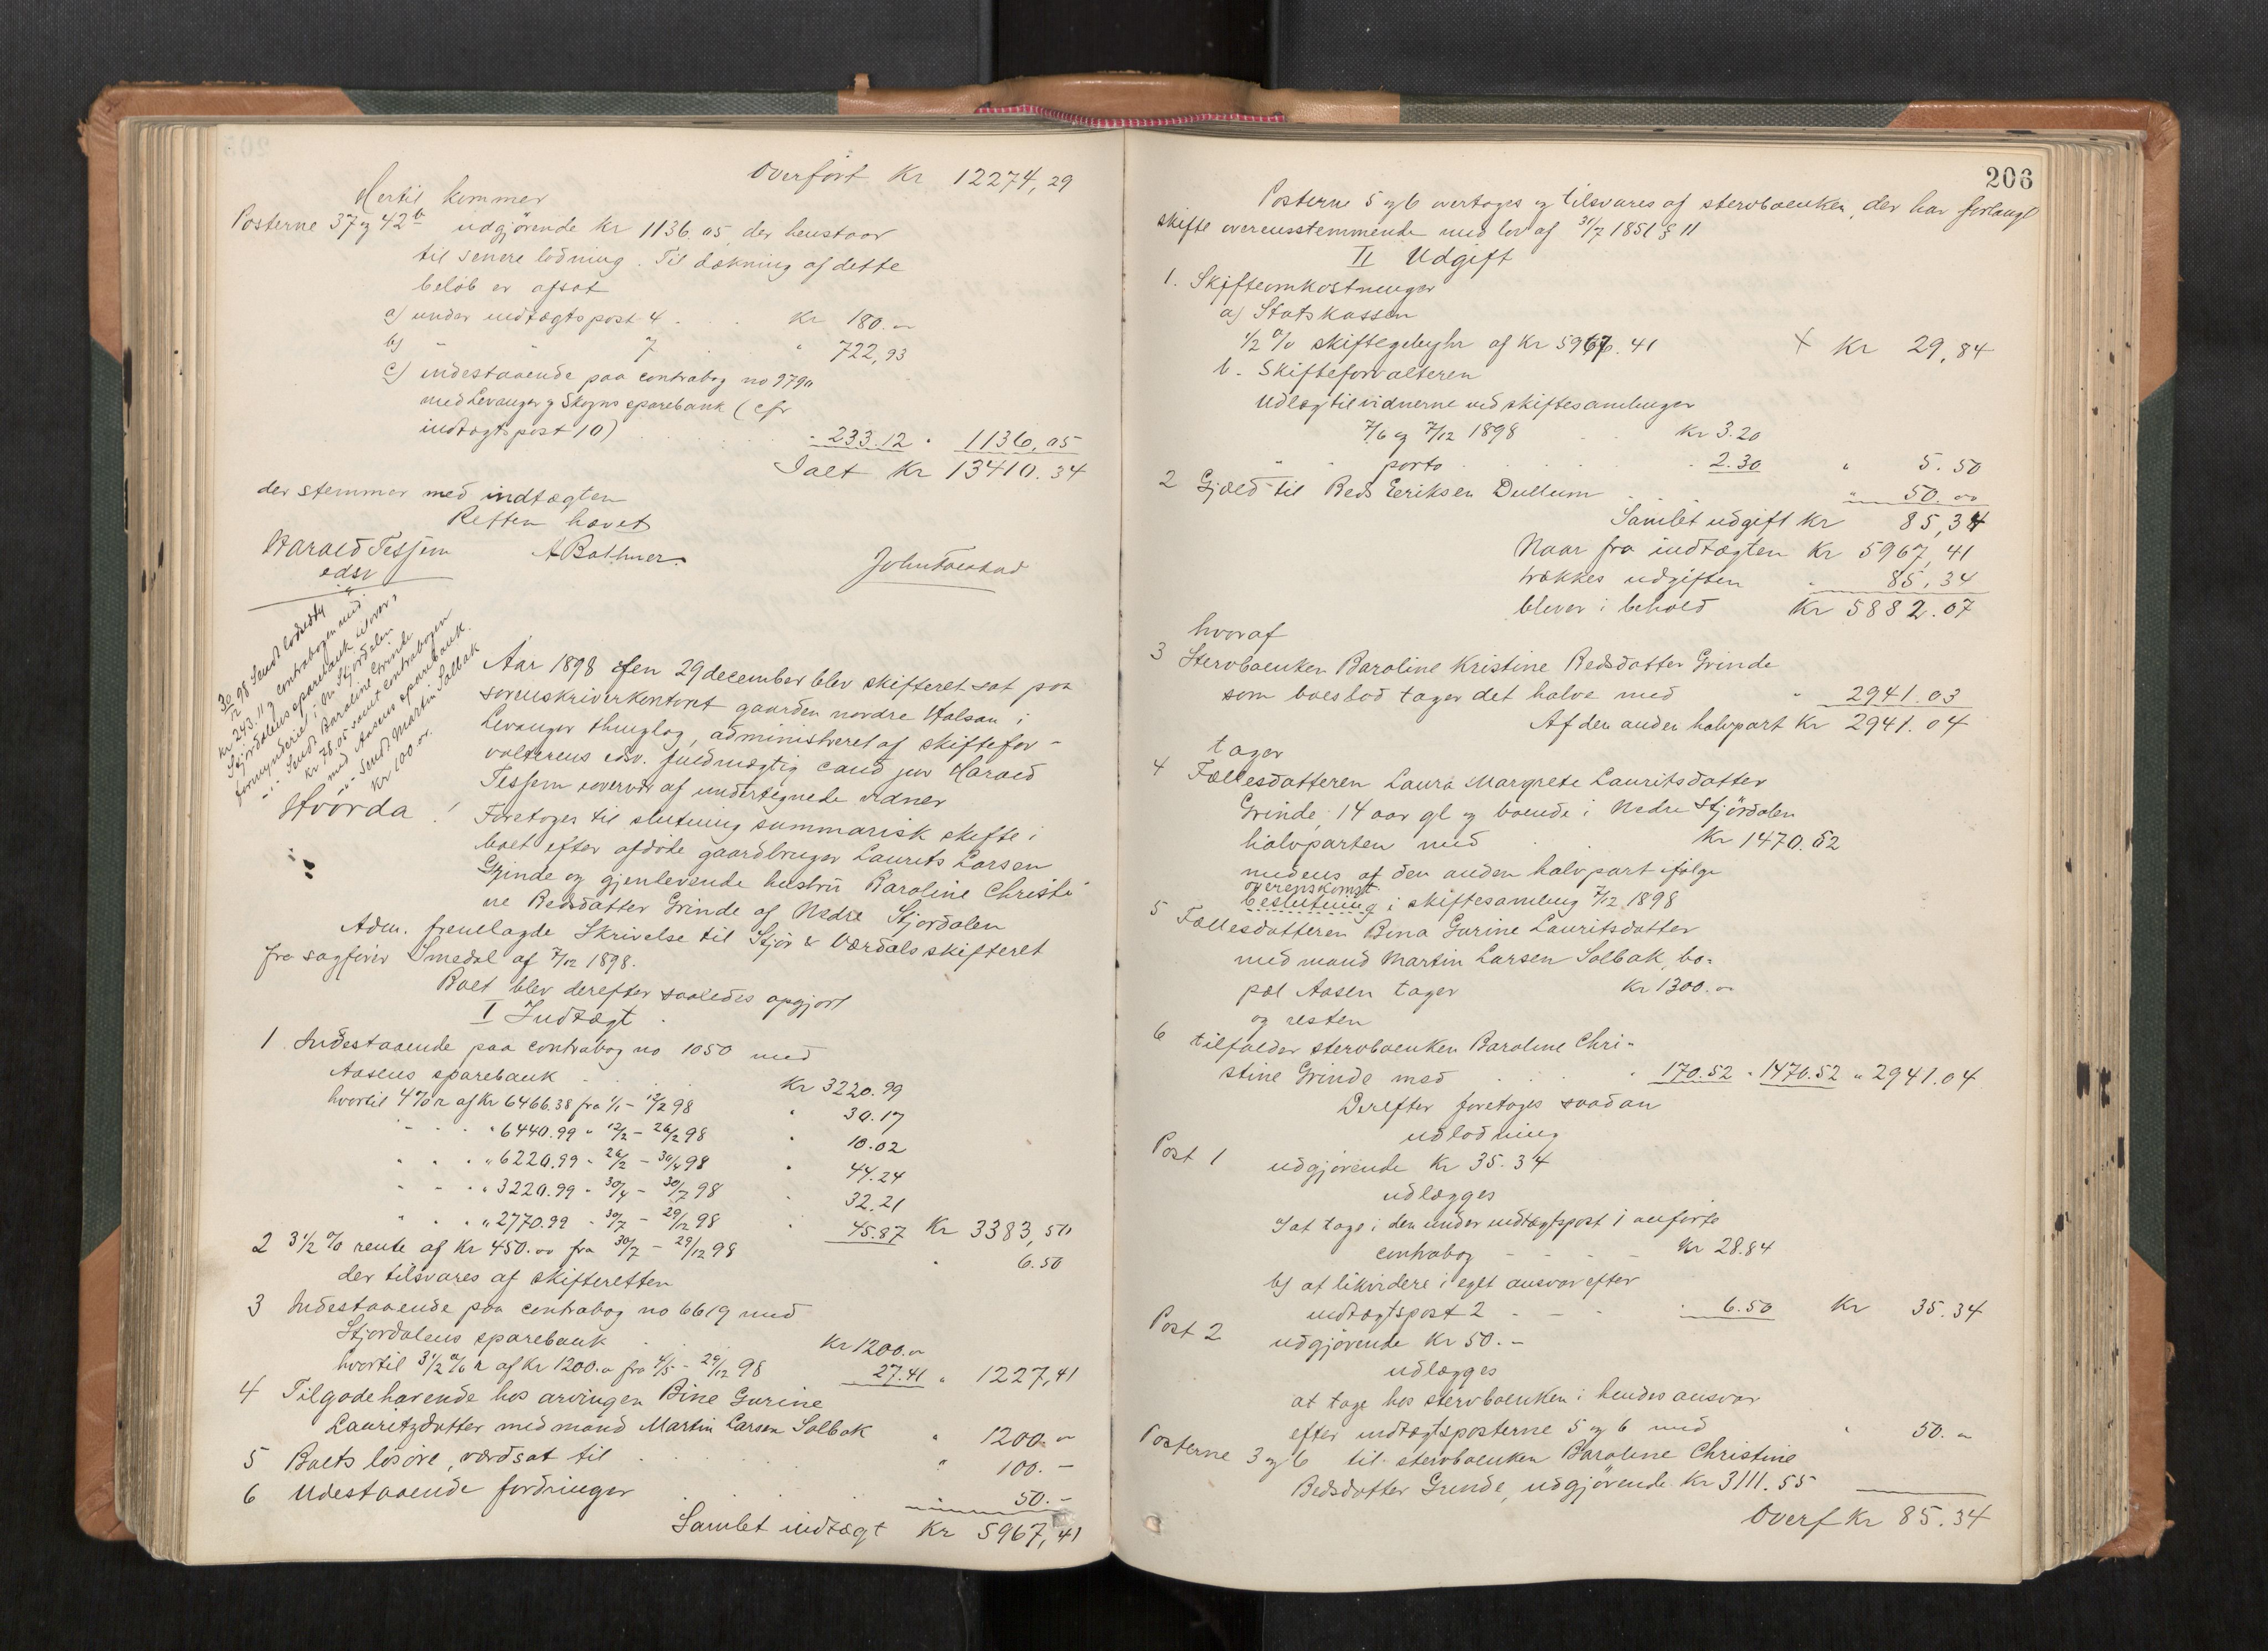 Overført Kr 12274,29
Hertil kommer
Posterne 37 og 42b udgjørende Kr 1136.05, der henstaar
til senere lodning. Til dækning af dette
beløb er afsat
a) under indtægtspost 4 . . Kr 180.00
b) " " 7 . " 722,93
c) indestaaende paa contrabog no 979a
med Levanger og Skogns sparebank (cfr
indtægtspost 10) . . . . . . " 233.12 " 1136,05
Ialt Kr 13410.34
der stemmer med indtægten
Retten hævet
Harald Tessem A Bothner John
edsv
30/12 98 Sendt
Kr 243.11 og contrabogen med
Stjørdalens sparebank
formynderiet i Ndr Stjørdalen
-"- Sendt Baroline Grinde
Kr 78.05 samt contrabogen
med Aasens sparebank.
-"- Sendt Martin Solbak
Kr 100.00.
Aar 1898 den 29 december blev skifteret sat paa
sorenskriverkontoret gaarden nordre Halsan i
Levanger thinglag, administreret af skiftefor-
valterens edsv. fuldmægtig cand jur Harald
Tessem overvær af undertegnede vidner
Hvorda!
Foretoges til slutning summarisk skifte i
boet efter afdøde gaardbruger Laurits Larsen
Grinde og gjenlevende hustru Baroline Christi-
ne Bedsdatter Grinde af Nedre Stjørdalen
Adm. fremlagde Skrivelse til Stjør & Værdals skifteret
fra sagfører Smedal af 7/12 1898.
Boet blev derefter saaledes opgjort
I Indtægt.
1 Indestaaende paa contrabog no 1050 med
Aasens sparebank . . . . . Kr 3220.99
hvortil 4% r af Kr 6466.38 fra 1/1 - 12/2 98 " 30.17
- - - " 6440.99 " 12/2 - 26/2 98 " 10.02
" . . " 6220.99 - 26/2 - 30/4 98 " 44.24
" - - " 3220.99 - 30/4 - 30/7 98 " 32.21
" . . " 2770.99 - 30/7 - 29/12 98 " 45.87 Kr 3383,50
2 3 1/2 % rente af Kr 450.00 fra 30/7 - 29/12 98 " 6.50
der tilsvares af skifteretten
3 Indestaaende paa contrabog no 6619 med
Stjørdalens sparebank . Kr 1200.00
hvortil 3 1/2 % r af Kr 1200.00 fra 4/5 - 29/12 98 27.41 " 1227,41
4 Tilgodehavende hos arvingen Bine Gurine
Lauritzdatter med mand Martin Larsen Solbak " 1200.00
5 Boets løsøre, værdsat til . . . . " 100.-
6 Udestaaende fordringer . . . . . 50.-
Samlet indtægt Kr 5967,41
206
Posterne 5 og 6 overtages og tilsvares af stervboenken, der har forlangt
skifte overensstemmende med lov af 31/7 1851 § 11
II Udgift
1. Skifteomkostninger
a) Statskassen
1/2 % skiftegebyhr af Kr 5967.41 + Kr 29,84
b. Skifteforvalteren
Udlæg til vidnerne ved skiftesamlinger
7/6 og 7/12 1898 . . Kr 3.20
" " porto . . . . . 2.30 " 5.50
2 Gjæld til Beds Eeriksen Dullum . . . " 50.00
Samlet udgift Kr 85,34
Naar fra indtægten Kr 5967,41
trækkes udgiften " 85,34
bliver i behold Kr 5882.07
hvoraf
3 Stervboenken Baroline Kristine Bedsdatter Grinde
som boeslod tager det halve med " 2941.03
Af den anden halvpart Kr 2941.04
tager
4 Fællesdatteren Laura Margrete Lauritsdatter
Grinde, 14 aar gl og boende i Nedre Stjørdalen
halvparten med . . Kr 1470.52
medens af den anden halvpart ifølge
overenskomst
beslutning i skiftesamling 7/12 1898
5 Fællesdatteren Bina Gurine Lauritsdatter
med mand Martin Larsen Solbak, bo-
pæl Aasen tager Kr 1300.00
og resten
6 tilfalder stervboenken Baroline Chri-
stine Grinde med . . . . " 170.52 " 1470.52 " 2941.04
Derefter foretoges saadan
udlodning
Post 1 udgjørende Kr 35.34
udlægges
a) at tage i den under indtægtspost 1 anførte
contrabog - - - - Kr 28.84
b) at likvidere i eget ansvar efter
indtægtspost 2 - - . . 6.50 Kr 35.34
Post 2 udgjørende Kr 50.-
udlægges
at tage hos stervboenken i hendes ansvar
efter indtægtsposterne 5 og 6 med " 50.00
Posterne 3 og 6 til stervboenken Baroline Christine
Bedsdatter Grinde, udgjørende Kr 3111.55
Overf Kr 85.34